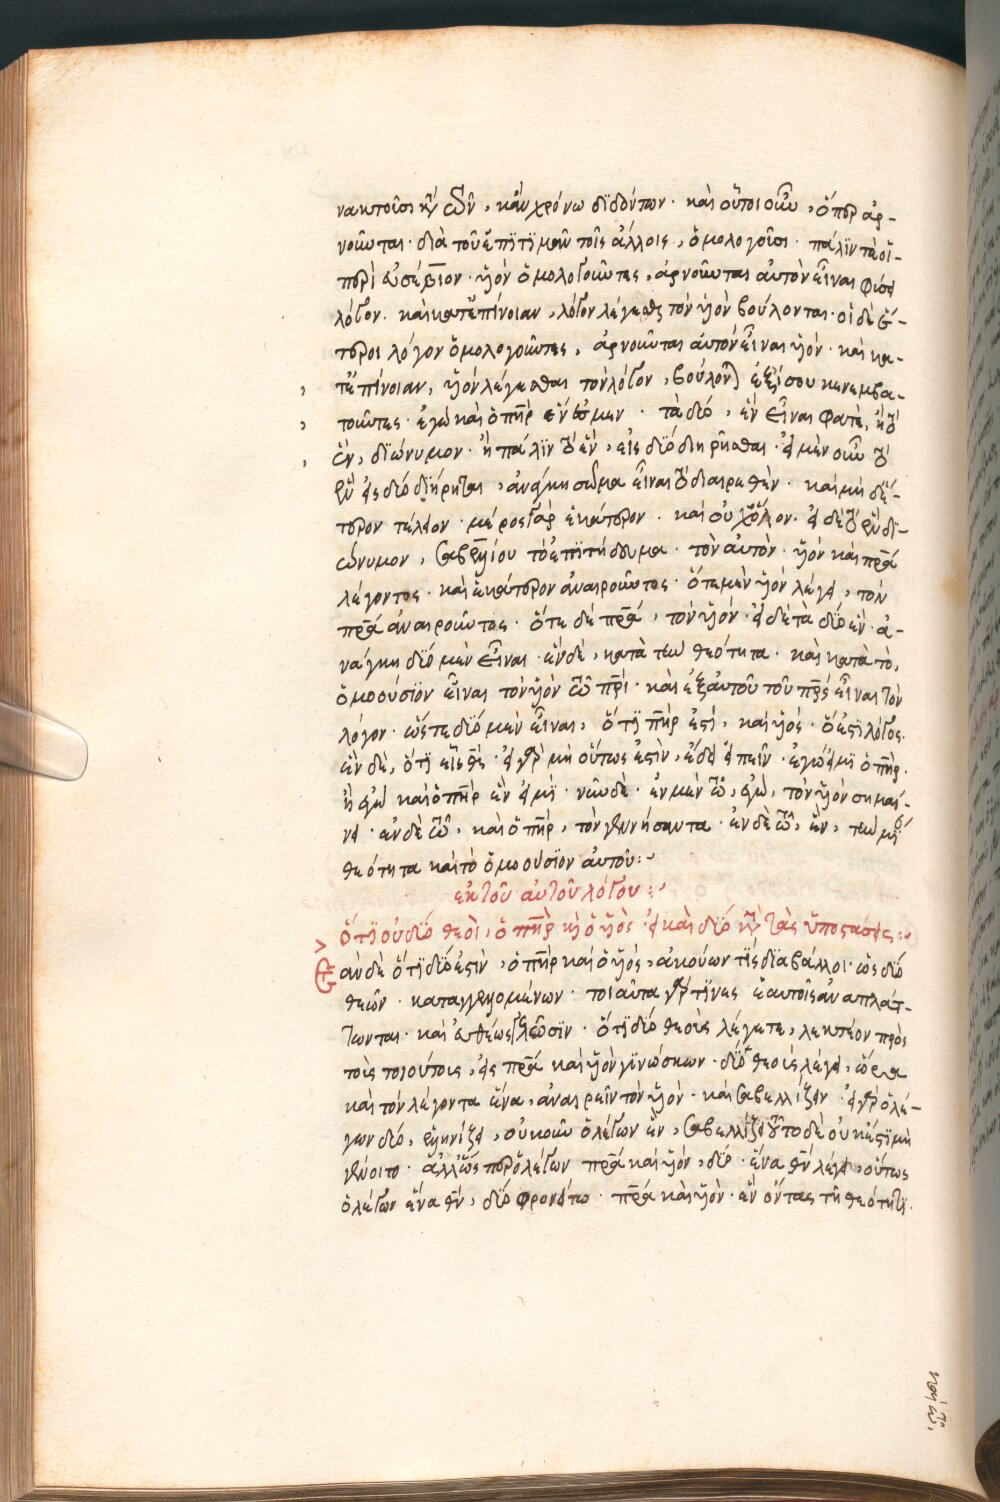 να κ τοῖς κτ᾽ ὧν, κἂν χρόνω διδόντων· καὶ οὗτοι οὖν, ὅπερ ἀρ-
νοῦνται· διὰ τοῦ ἐπϊτϊμᾶν τοῖς ἄλλοις, ὁμολογοῦσι· πάλϊν τὲ οἱ
περὶ εὐσέβϊον· υ̅ν̅ ὁμολογοῦντες, ἀρνοῦνται αὐτὸν εἶναι φύσει
λόγον· καὶ κατ᾽ ἐπίνοιαν, λόγον λέγεσθαι τὸν υ̅ν̅ βούλονται· οἱ δὲ ἕ-
τεροι λόγον ὁμολογοῦντες, ἀρνοῦνται αὐτὸν εἶναι υ̅ν̅· καὶ κα-
τ᾽ ἐπίνοιαν, υ̅ν̅ λέγεσθαι τὸν λόγον, βούλονται ἐξίσου κενεμβα-
τοῦντες· ἐγὼ καὶ ὁ π̅η̅ρ ἕν ἐσμεν· τὰ δύο, ἓν εἶναι φατὲ, ἢ τὸ
ἓν, διώνυμον· ἢ πάλϊν τὸ ἓν, εἰς δύο διηρῆσθαι· εἰ μὲν οὖν τὸ
ἓν εἰς δύο διήρηται, ἀνάγκη σῶμα εἶναι τὸ διαιρεθὲν· καὶ μὴ δέ-
τερον τέλειον· μέρος γὰρ ἑκάτερον· καὶ οὐχ ὅλον· εἰ δὲ τὸ ἓν δι-
ώνυμον, σαβελλίου τὸ ἐπϊτήδευμα· τὸν αὐτὸν· υ̅ν̅ καὶ π̅ρ̅α
λέγοντος· καὶ ἑκάτερον ἀναιροῦντος· ὅτε μὲν υ̅ν̅ λέγει, τὸν
π̅ρ̅α ἀναιροῦντος· ὅτε δὲ π̅ρ̅α, τὸν υ̅ν̅· εἰ δὲ τὰ δύο ἓν· ἀ-
νάγκη δύο μὲν εἶναι· ἓν δὲ, κατὰ τὴν θεότητα· καὶ κατὰ τὸ,
ὁμοούσϊον εἶναι τὸν υ̅ν̅ τῶ π̅ρ̅ι· καὶ ἐξ αὐτοῦ τοῦ π̅ρ̅ς εἶναι τὸν
λόγον· ὥστε δύο μὲν εἶναι, ὅτϊ π̅η̅ρ ἐστὶ, καὶ υ̅ς̅· ὅ ἐστϊ λόγος·
ἓν δὲ, ὅτϊ εἷς θ̅ς̅· εἰ γὰρ μὴ οὕτως ἐστὶν, ἔδει εἰπεῖν· ἐγώ εἰμϊ ὁ π̅η̅ρ·
ἢ ἐγὼ καὶ ὁ π̅η̅ρ ἕν εἰμϊ· νῦν δὲ· ἐν μὲν τῶ, ἐγὼ, τὸν υ̅ν̅ σημαί-
νει· ἐν δὲ τῶ, καὶ ὁ π̅η̅ρ, τὸν γεννήσαντα· ἐν δὲ τῶ, ἓν, τὴν μίαν
θεότητα καὶ τὸ ὁμοούσϊον αὐτοῦ:-
ἐκ τοῦ αὐτοῦ λόγου:-
ὅτϊ οὐ δύο θεοὶ, ὁ π̅η̅ρ κ̀ ὁ υ̅ς̅, εἰ καὶ δύο κτ̀ τὰς ὑποστάσεις:-
ἐὰν δὲ ὅτϊ δύο ἐστὶν, ὁ π̅η̅ρ καὶ ὁ υ̅ς̅, ἀκούων τϊς διαβάλλοι· ὡς δύο
θεῶν· καταγγελλομένων· τοιαῦτα γάρ τϊνες ἑαυτοῖς ἀναπλάτ-
τωνται· καὶ εὐθέως γελῶσϊν· ὅτϊ δύο θεοὺς λέγετε, λεκτέον πρὸς
τοὺς τοιούτους, εἰ π̅ρ̅α καὶ υ̅ν̅ γϊνώσκων· δύο θεοὺς λέγει, ὥρα
καὶ τὸν λέγοντα ἕνα, ἀναιρεῖν τὸν υ̅ν̅· καὶ σαβελλίζειν· εἰ γὰρ ὁ λέ-
γων δύο, ἑλληνίζει, οὐκοῦν ὁ λέγων ἓν, σαβελλίζει τοῦτο δὲ οὐκ ἔστϊ μὴ
γένοιτο· ἀλλ᾽ ὥσπερ ὁ λέγων π̅ρ̅α καὶ υ̅ν̅, δύο· ἕνα θ̅ν̅ λέγει, οὕτως
ὁ λέγων ἕνα θ̅ν̅, δύο φρονείτω· π̅ρ̅α καὶ υ̅ν̅· ἓν ὄντας τῆ θεότητϊ·
καὶ τῶ,